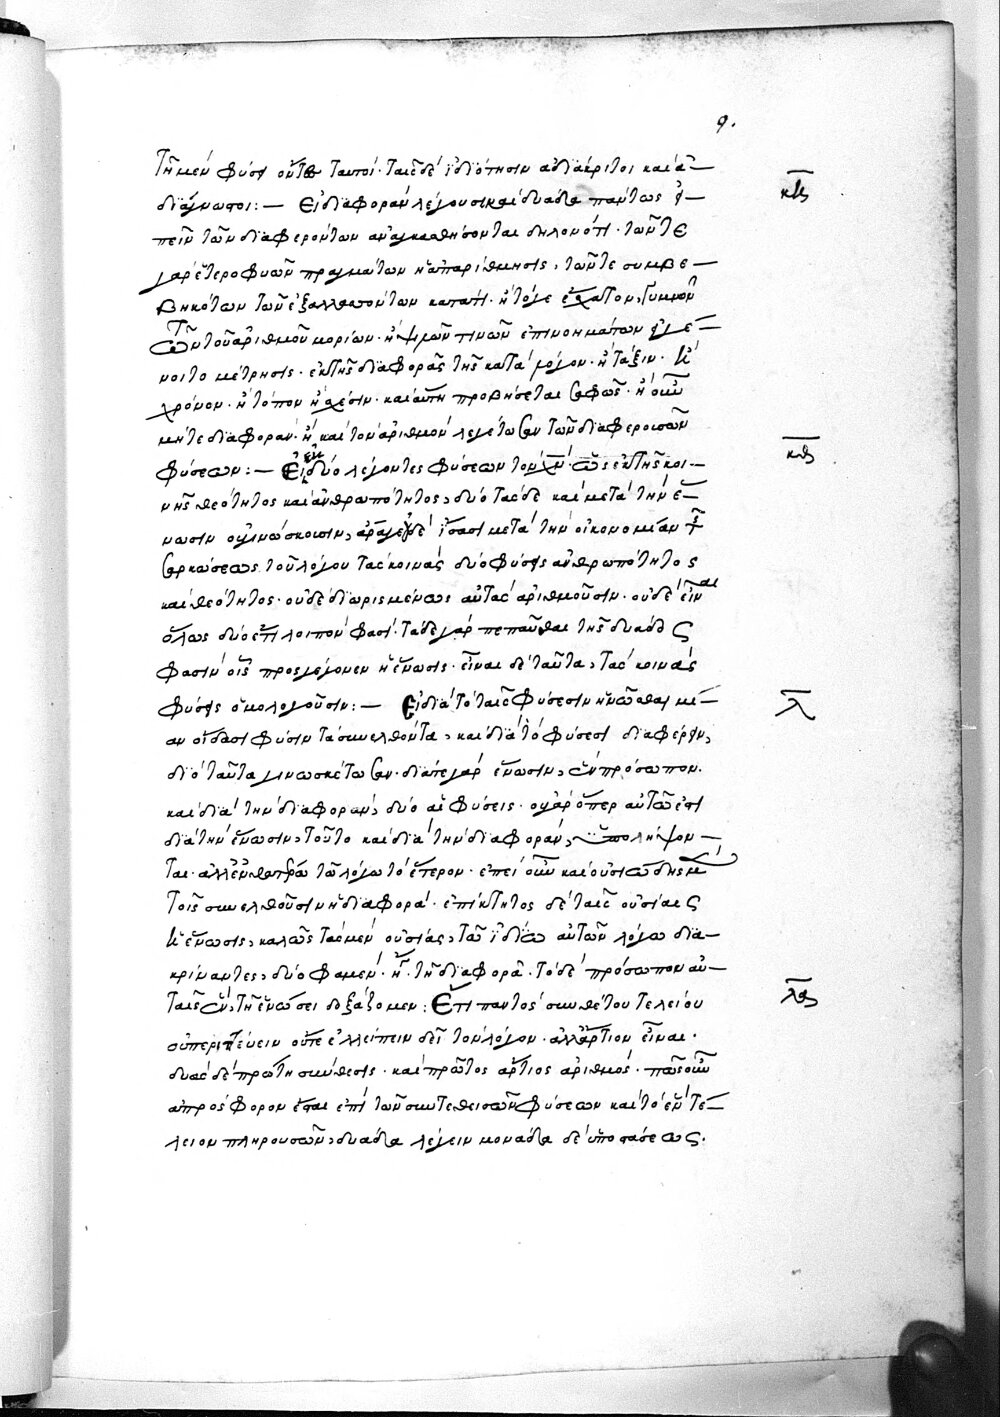 9.
τῇ μὲν φύσει οὕτω ταυτοί· ταῖς δὲ ἰδιότησιν ἀδιάκριτοι καὶ ἀ–
κη
διάγνωστοι :– Εἰ διαφορὰν λέγουσι καὶ δυάδα πάντως εἰ–
πεῖν τῶν διαφερόντων ἀναγκασθήσονται δηλονότι· τῶν τε
γὰρ ἑτεροφυῶν πραγμάτων ἡ ἀπαρίθμησις, τῶν τε συμβε–
βηκότων τῶν ἐξαλλαττόντων κατά τι· ἢ τό γε ἔσχατον, γυμνῶν
τῶν τοῦ ἀριθμοῦ μορίων· ἢ ψιλῶν τινῶν ἐπινοημάτων γέ–
νοιτο μέτρησις· ἐκ τῆς διαφορᾶς τῆς κατὰ λόγον· ἢ τάξιν· ἢ
χρόνον· ἢ τόπον ἢ σχέσιν· καὶ αὕτη προβήσεται σαφῶς· ἢ οὖν
μήτε διαφοράν· ἢ καὶ τὸν ἀριθμὸν λεγέτωσαν τῶν διαφερουσῶν
κθ
φύσεων :– Εἰ ἐκ δύο λέγοντες φύσεων τὸν χν· ὡς ἐκ τῆς κοι–
νῆς θεότητος καὶ ἀνθρωπότητος, δύο τάσδε καὶ μετὰ τὴν ἕ–
νωσιν οὐ γινώσκουσιν, ἆρά γε οὐδὲ ἴσασι μετὰ τὴν οἰκονομίαν τῆς
σαρκώσεως τοῦ λόγου τὰς κοινὰς δύο φύσεις ἀνθρωπότητος
καὶ θεότητος· οὐδὲ διωρισμένως αὐτὰς ἀριθμοῦσιν· οὐδὲ εἶναι
ὅλως δύο ἔτι λοιπὸν φασί· τάδε γὰρ πεπαῦσθαι τῆς δυάδος
φασὶν οἷς προσγέγονεν ἡ ἕνωσις· εἶναι δὲ ταῦτα, τὰς κοινὰς
λ
φύσεις ὁμολογοῦσιν :– Εἰ διὰ τὸ ταῖς φύσεσιν ἡνῶσθαι μί–
αν οἴδασι φύσιν τὰ συνελθόντα, καὶ διὰ τὸ φύσει διαφέρειν,
δύο ταῦτα γινωσκέτωσαν· διά τε γὰρ ἕνωσιν, ἓν πρόσωπον·
καὶ διὰ τὴν διαφορὰν, δύο αἱ φύσεις· οὐ γὰρ ὅπερ αὐτῷ ἐστι
διὰ τὴν ἕνωσιν, τοῦτο καὶ διὰ τὴν διαφορὰν, ὑπολήψον–
ται· ἀλλ' ἑκατέρῳ τῷ λόγῳ τὸ ἕτερον· ἐπεὶ οὖν καὶ οὐσιώδης μὲν
τοῖς συνελθοῦσιν ἡ διαφορά· ἐπίκτητος δὲ ταῖς οὐσίαις
ἡ ἕνωσις, καλῶς τὰς μὲν οὐσίας, τῷ ἰδίῳ αὐτῶν λόγῳ δια–
κρίναντες, δύο φαμέν· ἤ· τῇ διαφορᾷ· τὸ δὲ πρόσωπον αὐ–
λα
ταῖς ἓν, τῇ ἑνώσει δοξάζομεν : Ἔτι παντὸς συνθέτου τελείου
οὐ περιττεύειν οὔτε ἐλλείπειν δεῖ τὸν λόγον· ἀλλ' ἄρτιον εἶναι·
δυὰς δὲ πρώτη σύνθεσις· καὶ πρῶτος ἄρτιος ἀριθμός· πῶς οὖν
ἀπρόσφορον ἔσται ἐπὶ τῶν συντεθεισῶν φύσεων καὶ τὸ ἓν τέ–
λειον πληρουσῶν, δυάδα λέγειν μονάδα δὲ ὑποστάσεως.